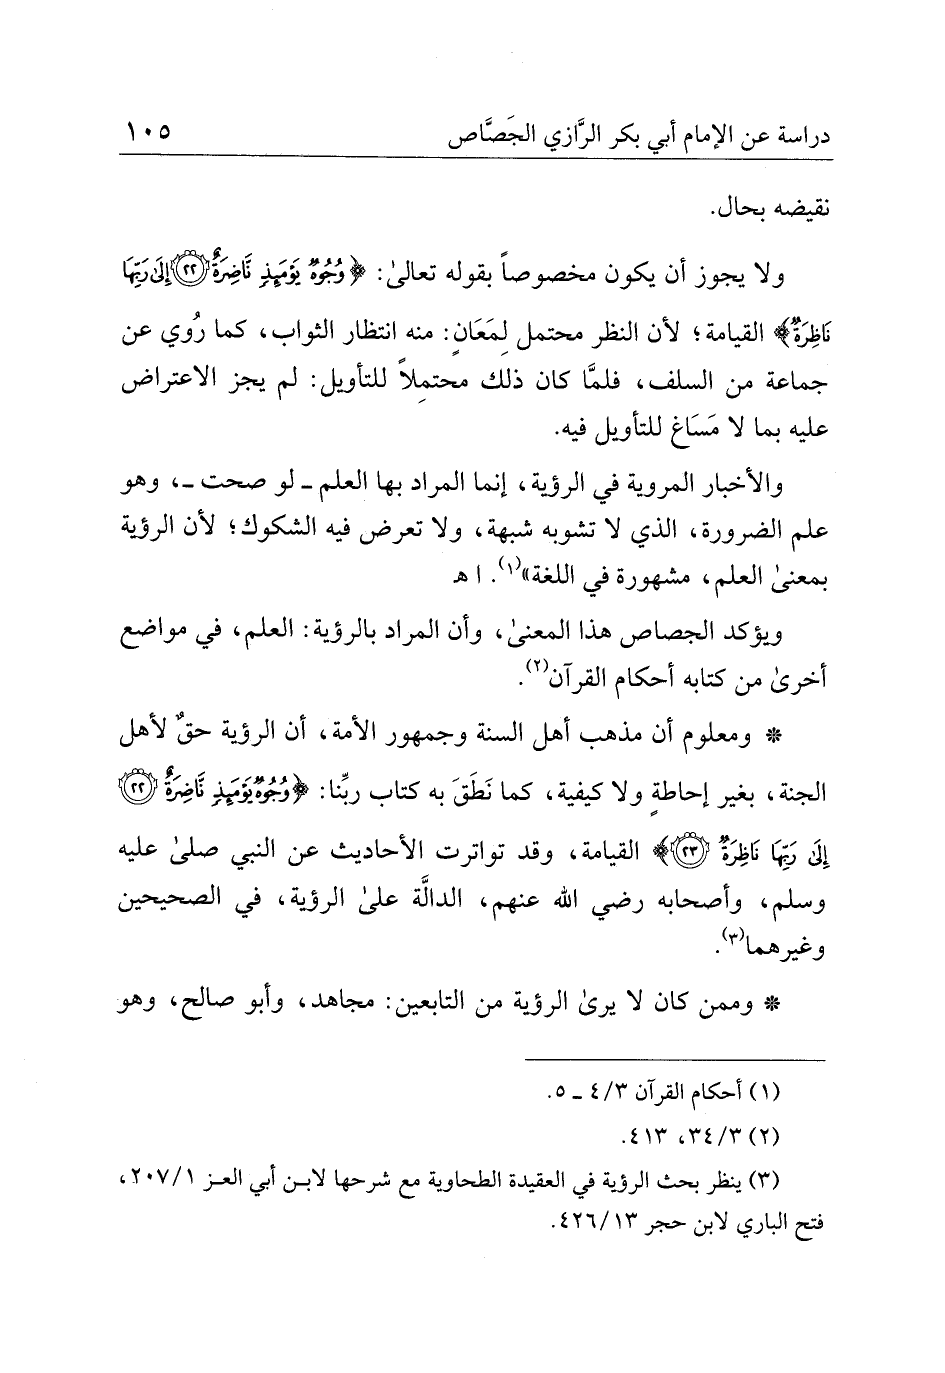 دراسة عن الإمام أبي بكر الرَّازي الجَصَّاص ١٠٥
نقيضه بحال.
ولا يجوز أن يكون مخصوصاً بقوله تعالىٰ: ﴿وُجُوهٌ يَوْمَئِذٍ نَّاضِرَةٌ ٢٢ إِلَىٰ رَبِّهَا
نَاظِرَةٌ﴾ القيامة؛ لأن النظر محتمل لِمَعَانٍ: منه انتظار الثواب، كما رُوي عن
جماعة من السلف، فلمَّا كان ذلك محتمِلاً للتأويل: لم يجز الاعتراض
عليه بما لا مَسَاغ للتأويل فيه.
والأخبار المروية في الرؤية، إنما المراد بها العلم ـ لو صحت ـ، وهو
علم الضرورة، الذي لا تشوبه شبهة، ولا تعرض فيه الشكوك؛ لأن الرؤية
بمعنىٰ العلم، مشهورة في اللغة»(١). ا هـ
ويؤكد الجصاص هذا المعنىٰ، وأن المراد بالرؤية: العلم، في مواضع
أخرىٰ من كتابه أحكام القرآن(٢).
* ومعلوم أن مذهب أهل السنة وجمهور الأمة، أن الرؤية حقٌ لأهل
الجنة، بغير إحاطةٍ ولا كيفية، كما نَطَقَ به كتاب ربِّنا: ﴿وُجُوهٌ يَوْمَئِذٍ نَّاضِرَةٌ ٢٢
إِلَىٰ رَبِّهَا نَاظِرَةٌ ٢٣﴾ القيامة، وقد تواترت الأحاديث عن النبي صلىٰ عليه
وسلم، وأصحابه رضي الله عنهم، الدالَّة علىٰ الرؤية، في الصحيحين
وغيرهما(٣).
* وممن كان لا يرىٰ الرؤية من التابعين: مجاهد، وأبو صالح، وهو
(١) أحكام القرآن ٤/٣ ـ ٥.
(٢) ٣٤/٣، ٤١٣.
(٣) ينظر بحث الرؤية في العقيدة الطحاوية مع شرحها لابن أبي العز ٢٠٧/١،
فتح الباري لابن حجر ٤٢٦/١٣.